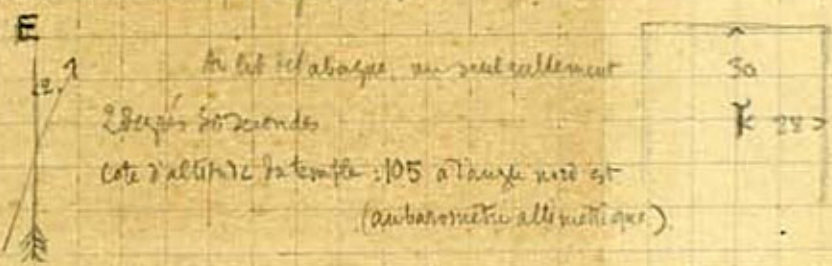 E
2
Au lit de l'abaque, un seul scellement
2 Degrés 50 secondes
cote d'altitude du temple : 105 a l'angle nord est
(au baromètre altimétrique)
50
K 28